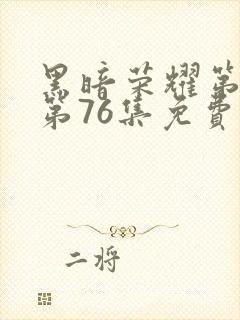 黑暗荣耀第
第76集免費
二将